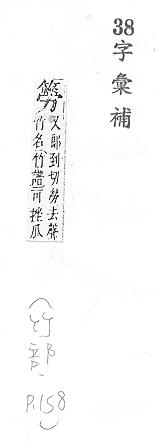 38字彙補
䉉又郎到切勞去聲
竹名竹譜可挫爪
(竹部 P.158)